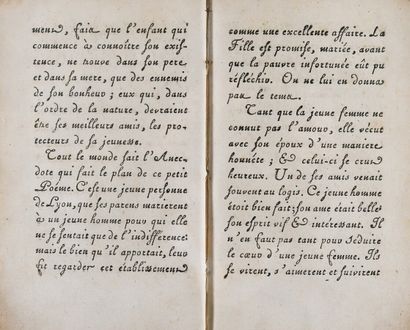 ment, fait que l'enfant qui
commence à connoître son exis-
tence, ne trouve dans son pere
et dans sa mere, que des ennemis
de son bonheur ; eux qui, dans
l'ordre de la nature, devraient
être ses meilleurs amis, les pro-
tecteurs de sa jeunesse.
Tout le monde sait l'Anec-
dote qui fait le plan de ce petit
Poëme. C'est une jeune personne
de Lyon, que ses parens marierent
à un jeune homme pour qui elle
ne se sentait que de l'indifférence :
mais le bien qu'il apportait, leur
fit regarder cet établissement
comme une excellente affaire. La
Fille est promise, mariée, avant
que la pauvre infortunée eût pu
réfléchir. On ne lui en donna
pas le tems.
Tant que la jeune femme ne
connut pas l'amour, elle vécut
avec son époux d'une maniere
honnête ; & celui-ci se crut
heureux. Un de ses amis venait
souvent au logis. Ce jeune homme
étoit bien fait ; son ame était belle,
son esprit vif & intéressant. Il
n'en faut pas tant pour séduire
le cœur d'une jeune femme. Ils
se virent, s'aimerent et suivirent